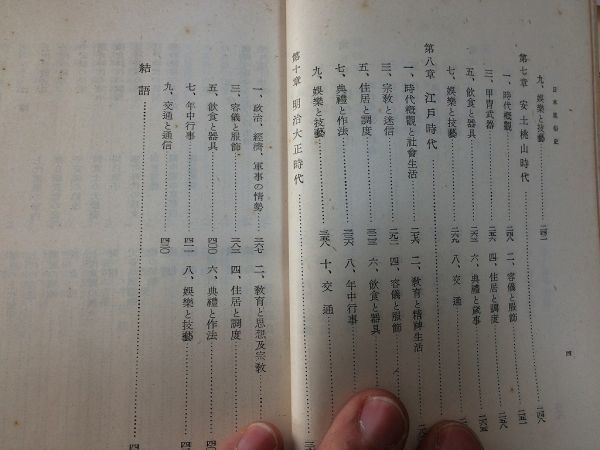 日本風俗史
四
九、娯樂と技藝……二四二
第七章 安土桃山時代……二四八
一、時代概觀……二四八 二、容儀と服飾……二五一
三、甲冑武器……二五六 四、住居と調度……二五八
五、飲食と器具……二六三 六、典禮と歳事……二六五
七、娯樂と技藝……二六九 八、交通……
第八章 江戸時代……
一、時代概觀と社會生活……二七六 二、教育と精神生活
三、宗教と迷信……二九二 四、容儀と服飾……
五、住居と調度……三二三 六、飲食と器具……
七、典禮と作法……三三六 八、年中行事……
九、娯樂と技藝……三五八 十、交通……
第十章 明治大正時代……
一、政治、經濟、軍事の情勢……三六七 二、教育と思想及宗教
三、容儀と服飾……三八三 四、住居と調度……
五、飲食と器具……四〇〇 六、典禮と作法……
七、年中行事……四一一 八、娯樂と技藝……
九、交通と通信……四三〇
結語……